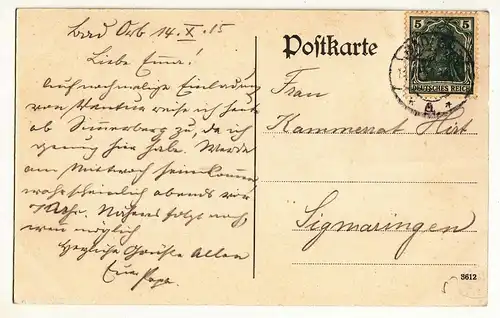 Bad Orb 14.X.15
Liebe Emma!
Auf nochmalige Einladung
von reise ich heute
ab zu, da ich
genug hier habe. Werde
am Mittwoch heimkommen,
wahrscheinlich abends vor
7 Uhr. Näheres folgt noch,
wenn möglich
Herzliche Grüße Allen
Euer Papa.
Postkarte
5 5
DEUTSCHES REICH
Frau
Kammerrat Hirt
Sigmaringen
3612